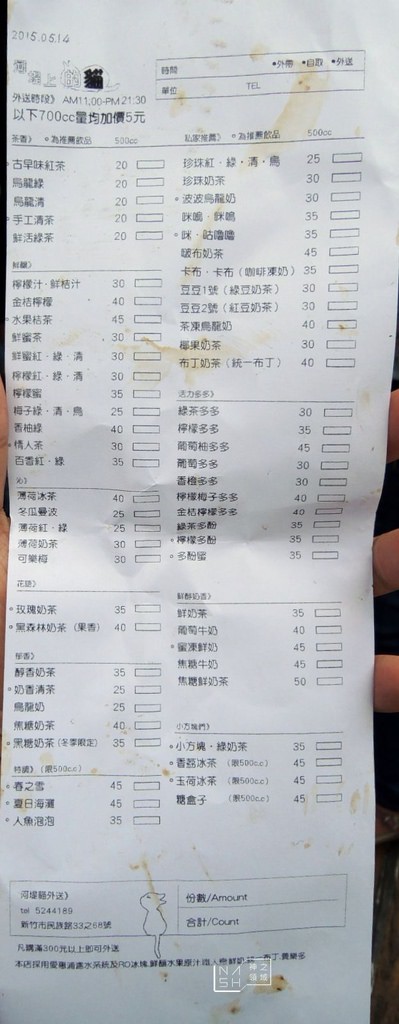 2015.05.14
河堤上的貓
時間 •外帶 •自取 •外送
單位 TEL
外送時段》 AM11:00-PM21:30
以下700cc量均加價5元
茶香》 •為推薦飲品 500cc
•古早味紅茶 20
烏龍綠 20
烏龍清 20
•手工清茶 20
鮮活綠茶 20
鮮釀》
檸檬汁．鮮桔汁 30
金桔檸檬 40
•水果桔茶 45
鮮蜜茶 30
鮮蜜紅．綠．清 30
檸檬紅．綠．清 30
檸檬蜜 35
梅子綠．清．烏 25
香柚綠 40
•情人茶 30
百香紅．綠 35
沁》
薄荷冰茶 40
冬瓜曼波 25
薄荷紅．綠 25
薄荷奶茶 30
可樂梅 30
花語》
•玫瑰奶茶 35
•黑森林奶茶（果香） 40
醇香奶茶 35
•奶香清茶 25
烏龍奶 25
焦糖奶茶 40
•黑糖奶茶(冬季限定) 35
特調》（限500c.c）
•春之雪 45
•夏日海灘 45
•人魚泡泡 35
私家推薦》 •為推薦飲品 500cc
珍珠紅．綠．清．烏 25
珍珠奶茶 30
•波波烏龍奶 30
咪嗚．咪嗚 35
•咪．咕嚕嚕 35
啵布奶茶 45
卡布．卡布（咖啡凍奶） 35
豆豆1號（綠豆奶茶） 30
豆豆2號（紅豆奶茶） 30
茶凍烏龍奶 40
椰果奶茶 30
布丁奶茶（統一布丁） 40
活力多多》
綠茶多多 30
檸檬多多 35
葡萄柚多多 45
葡萄多多 30
香橙多多 30
•檸檬梅子多多 40
金桔檸檬多多 40
綠茶多酚 35
•檸檬多酚 35
•多酚蜜 35
鮮醇奶香》
鮮奶茶 35
葡萄牛奶 40
•蜜凍鮮奶 45
焦糖牛奶 45
焦糖鮮奶茶 50
小方塊們》
•小方塊．綠奶茶 35
•香荔冰茶 （限500c.c） 45
•玉荷冰茶 （限500c.c） 45
糖盒子 （限500c.c） 45
河堤貓外送》
tel 5244189
新竹市民族路33之68號
份數/Amount
合計/Count
凡購滿300元以上即可外送
NASH 神之領域